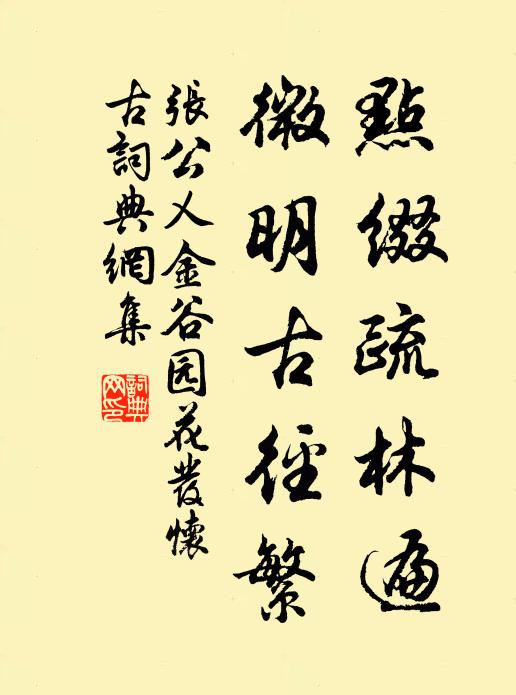 點綴疏林遍
微明古徑繁
張公乂金谷园花發懷
古詞典網集
詞典网印